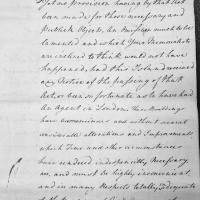 Yet no provision having by that Act
been made for those necessary and
Publick Objects, an Omission much to be
lamented and which Your Memorialists
are inclined to think would not have
happened, had this Island received
any Notice of the passing of that
Act or been so fortunate as to have had
an Agent in London, these Buildings
have
and without several
unavoidable alterations and Improvements
which Time and other circumstances
have rendered indispensibly necessary
are and must be highly inconvenient
and in many Respects totally Inadequate